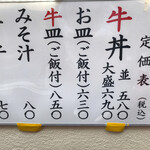 定価表(税込)
牛丼 並 五八〇
大盛 六九〇
お皿(ご飯付)六三〇
牛皿(ご飯付)八五〇
みそ汁 八〇
七〇